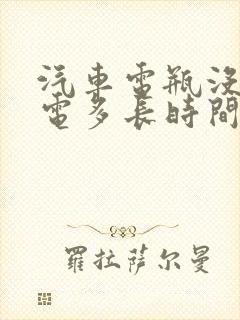 汽車電瓶沒
電多長時間
羅拉薩尔曼